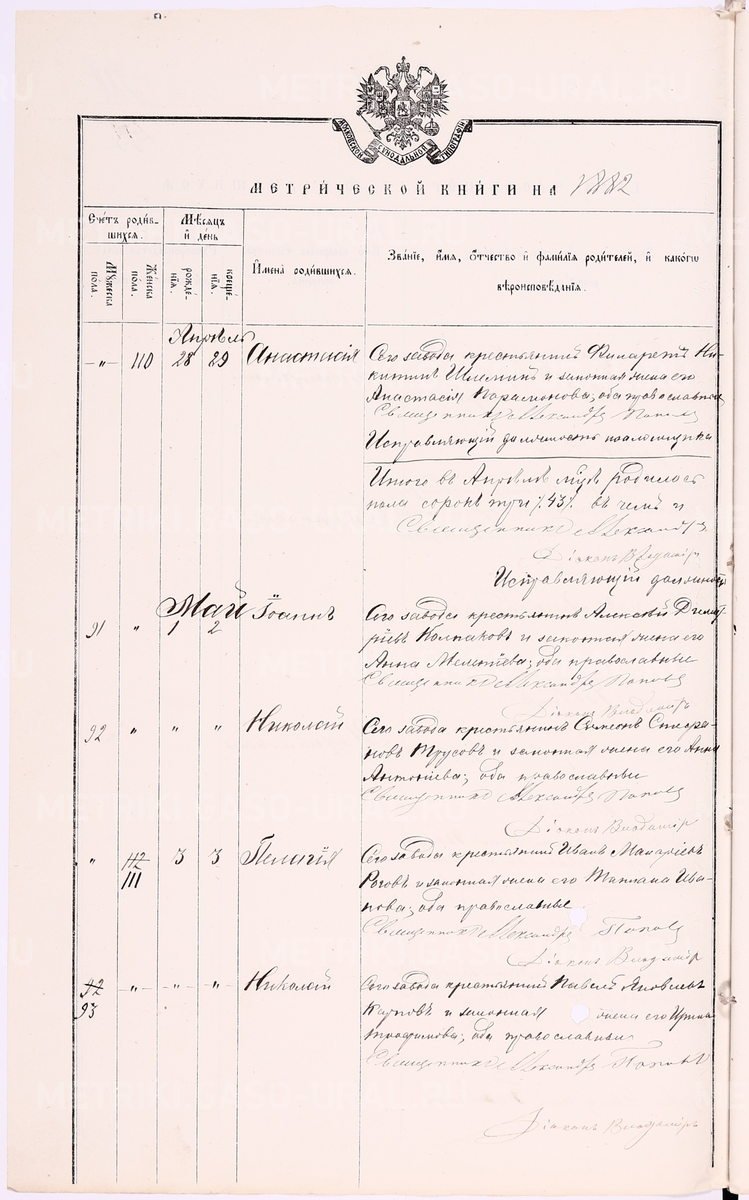 МОСКОВСКОЙ СѴНОДАЛЬНОЙ ТИПОГРАФІИ
МЕТРИ́ЧЕСКОЙ КНИ́ГИ НА 1882
Счетъ роди́в-
шихся.
Мѣсяцъ
и҆ де́нь
И҆мена̀ роди́вшихся.
Зва́нїе, и҆́мя, ѻ҆́тчество и҆ фами́лїя роди́телей, и҆ како́гѡ
вѣроисповѣ́данїѧ.
Мꙋ́жеска
пола.
Же́нска
пола.
рожде́-
нїѧ.
креще́-
нїѧ.
Апрѣль
—„— 110 28 29 Анастасія Сего завода крестьянинъ Филаретъ Ни-
китинъ Шлеминъ и законная жена его
Анастасія Парамонова, оба православные
Священникъ Александръ Поповъ
Исправляющій должность псаломщика
Итого въ Апрѣлѣ м-цѣ родилось
пола сорокъ три /.43/. въ чемъ и
Священникъ Александръ
Діаконъ Владиміръ
Исправляющій должность
Май
91 „ 1 2 Іоаннъ Сего завода крестьянинъ Алексѣй Дмит-
ріевъ Колпаковъ и законная жена его
Анна Мелентіева; оба православные
Священникъ Александръ Поповъ
Діаконъ Владиміръ
92 „ „ „ Николай Сего завода крестьянинъ Симеонъ Спири-
новъ Трусовъ и законная жена его Анна
Антоніева; оба православные
Священникъ Александръ Поповъ
Діаконъ Владиміръ
„ 112 3 3 Пелагія Сего завода крестьянинъ Иванъ Макаріевъ
111 Роговъ и законная жена его Татіана Ива-
нова; оба православные
Священникъ Александръ Поповъ
Діаконъ Владиміръ
92 —„— —„— —„— Николай Сего завода крестьянинъ Павелъ Яковлевъ
93 Карповъ и законная жена его Ирина
Трофимова; оба православные
Священникъ Александръ Поповъ
Діаконъ Владиміръ